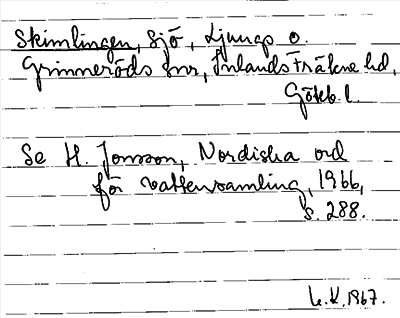 Skimlingen, sjö, Ljungs o.
Grinneröds snr, Inlands Fräkne hd,
Göteb. l.
Se H. Jonsson, Nordiska ord
för vattensamling, 1966,
s. 288.
1967.